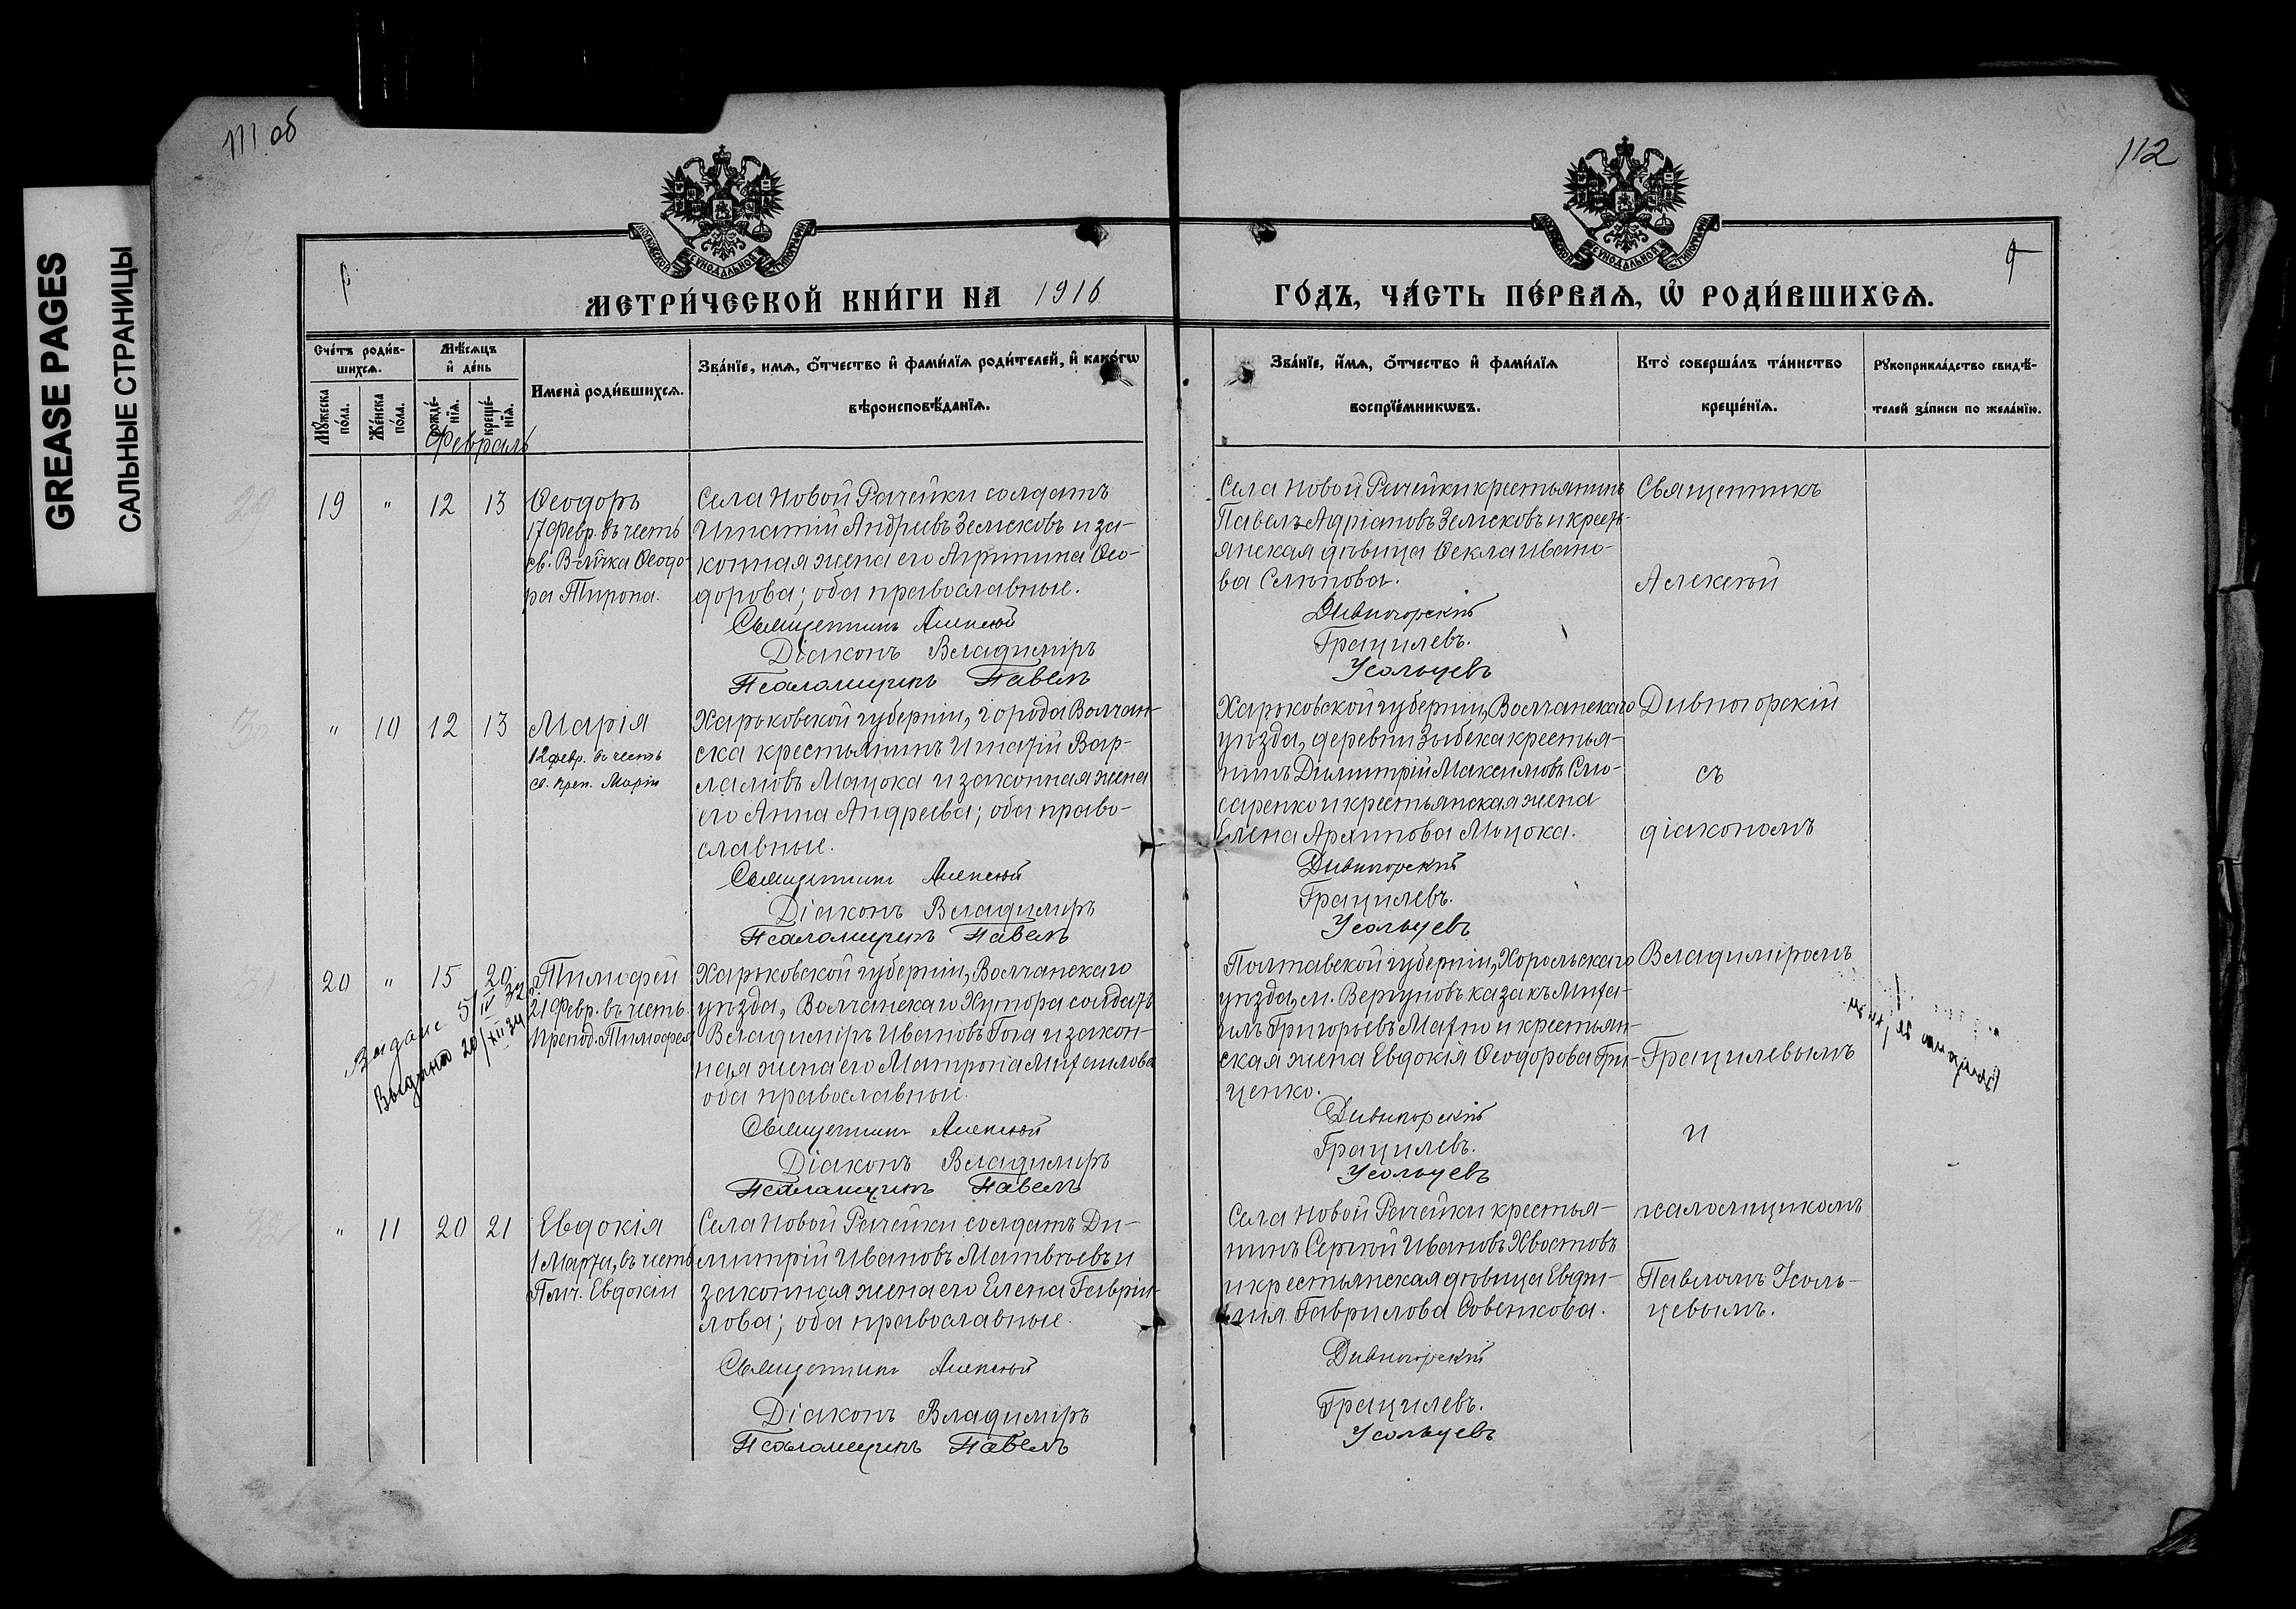 111 об
112
GREASE PAGES
САЛЬНЫЕ СТРАНИЦЫ
МОСКОВСКОЙ СѴНОДАЛЬНОЙ ТИПОГРАФІИ
МОСКОВСКОЙ СѴНОДАЛЬНОЙ ТИПОГРАФІИ
МЕТРИ́ЧЕСКОЙ КНИ́ГИ НА 1916
ГО́ДЪ, ЧА́СТЬ ПЕ́РВАѦ, Ѡ҆ РОДИ́ВШИХСѦ.
Сче́тъ роди́в-
шихсѧ.
Мѣ́сѧцъ
и҆ де́нь
Имена̀ роди́вшихсѧ.
Зва́нїе, имѧ, ѻ҆́тчество и҆ фами́лїѧ роди́телей, и҆ како́гѡ
вѣроисповѣ́данїѧ.
Мꙋ́жеска
по́ла.
Же́нска
по́ла.
рожде́-
нїѧ.
креще́-
нїѧ.
Февраль
Зва́нїе, и҆́мѧ, ѻ҆́тчество и҆ фами́лїѧ
воспрїе́мникѡвъ.
Кто̀ соверша́лъ та́инство
креще́нїѧ.
Рꙋкоприкла́дство свидѣ́-
телей за́писи по жела́нїю.
29
19 " 12 13
Ѳеодоръ
17 Февр. въ честь
св. В-мчка Ѳеодо-
ра Тирона.
Села Новой Рачейки солдатъ
Игнатій Андреевъ Земсковъ и за-
конная жена его Агрипина Ѳео-
дорова; оба православные.
Священникъ Алексѣй
Діаконъ Владиміръ
Псаломщикъ Павелъ
Села Новой Рачейки крестьянинъ
Павелъ Адріановъ Земсковъ и кресть-
янская дѣвица Ѳекла Ивано-
ва
Дивногорскій
Грацилевъ.
Усольцевъ
Священникъ
Алексѣй
30
" 10 12 13
Марія
12 февр. въ честь
св. преп. Маріи
Харьковской губерніи, города Волчан-
ска крестьянинъ Игнатій Вар-
ламовъ Мацока и законная жена
его Анна Андреева; оба право-
славные.
Священникъ Алексѣй
Діаконъ Владиміръ
Псаломщикъ Павелъ
Харьковской губерніи, Волчанскаго
уѣзда, деревни Зыбека крестья-
нинъ Димитрій Максимовъ Слю-
саренко и крестьянская жена
Елена Архипова Мацока.
Дивногорскій
Грацилевъ.
Усольцевъ
Дивногорскій
съ
діакономъ
31
20 " 15 20
Тимоѳей
21 Февр. въ честь
Препод. Тимоѳея
Харьковской губерніи, Волчанскаго
уѣзда, Волчанскаго Хутора солдатъ
Владиміръ Ивановъ Гога и закон-
ная жена его Матрона Михаилова
оба православные.
Священникъ Алексѣй
Діаконъ Владиміръ
Псаломщикъ Павелъ
Полтавской губерніи, Хорольскаго
уѣзда, м. Вергуновъ казакъ Миха-
илъ Григорьевъ Махно и крестьян-
ская жена Евдокія Ѳеодорова Гри-
ценко.
Дивногорскій
Грацилевъ.
Усольцевъ
Владиміромъ
Грацилевымъ
и
Выдана 20/XII 34
32
" 11 20 21
Евдокія
1 Марта, въ честь
Пмч. Евдокіи
Села Новой Рачейки солдатъ Ди-
митрій Ивановъ Матвѣевъ и
законная жена его Елена Гаврии-
лова; оба православные.
Священникъ Алексѣй
Діаконъ Владиміръ
Псаломщикъ Павелъ
Села Новой Рачейки крестья-
нинъ Сергѣй Ивановъ Хвостовъ
и крестьянская дѣвица Евфи-
мія Гаврилова Совенкова.
Дивногорскій
Грацилевъ.
Усольцевъ
псаломщикомъ
Павломъ Усоль-
цевымъ.